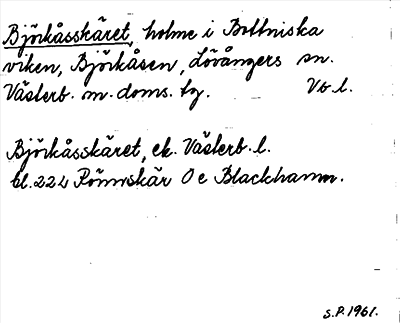 Björkåsskäret, holme i Bottniska
viken, Björkåsen, Lövångers sn.
Västerb. m. doms. tg. Vb l.
Björkåsskäret, ek. Västerb. l.
bl. 22 L Rönnskär O e Blackhamn.
S.P. 1961.